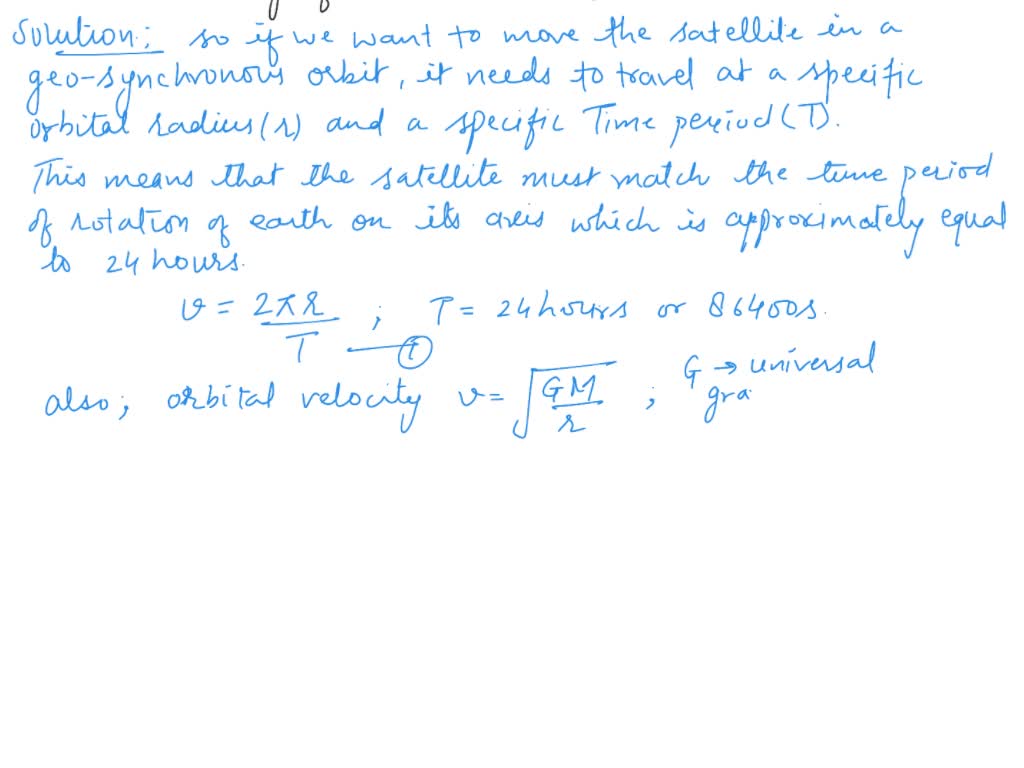 Solution: so if we want to move the satellite in a
geo-synchronous orbit, it needs to travel at a specific
orbital radius(r) and a specific Time period(T).
This means that the satellite must match the time period
of rotation of earth on its axis which is approximately equal
to 24 hours.
v = 2πr / T ; T = 24 hours or 86400s. — ①
also; orbital velocity v = √(GM / r) ; G → universal
gra